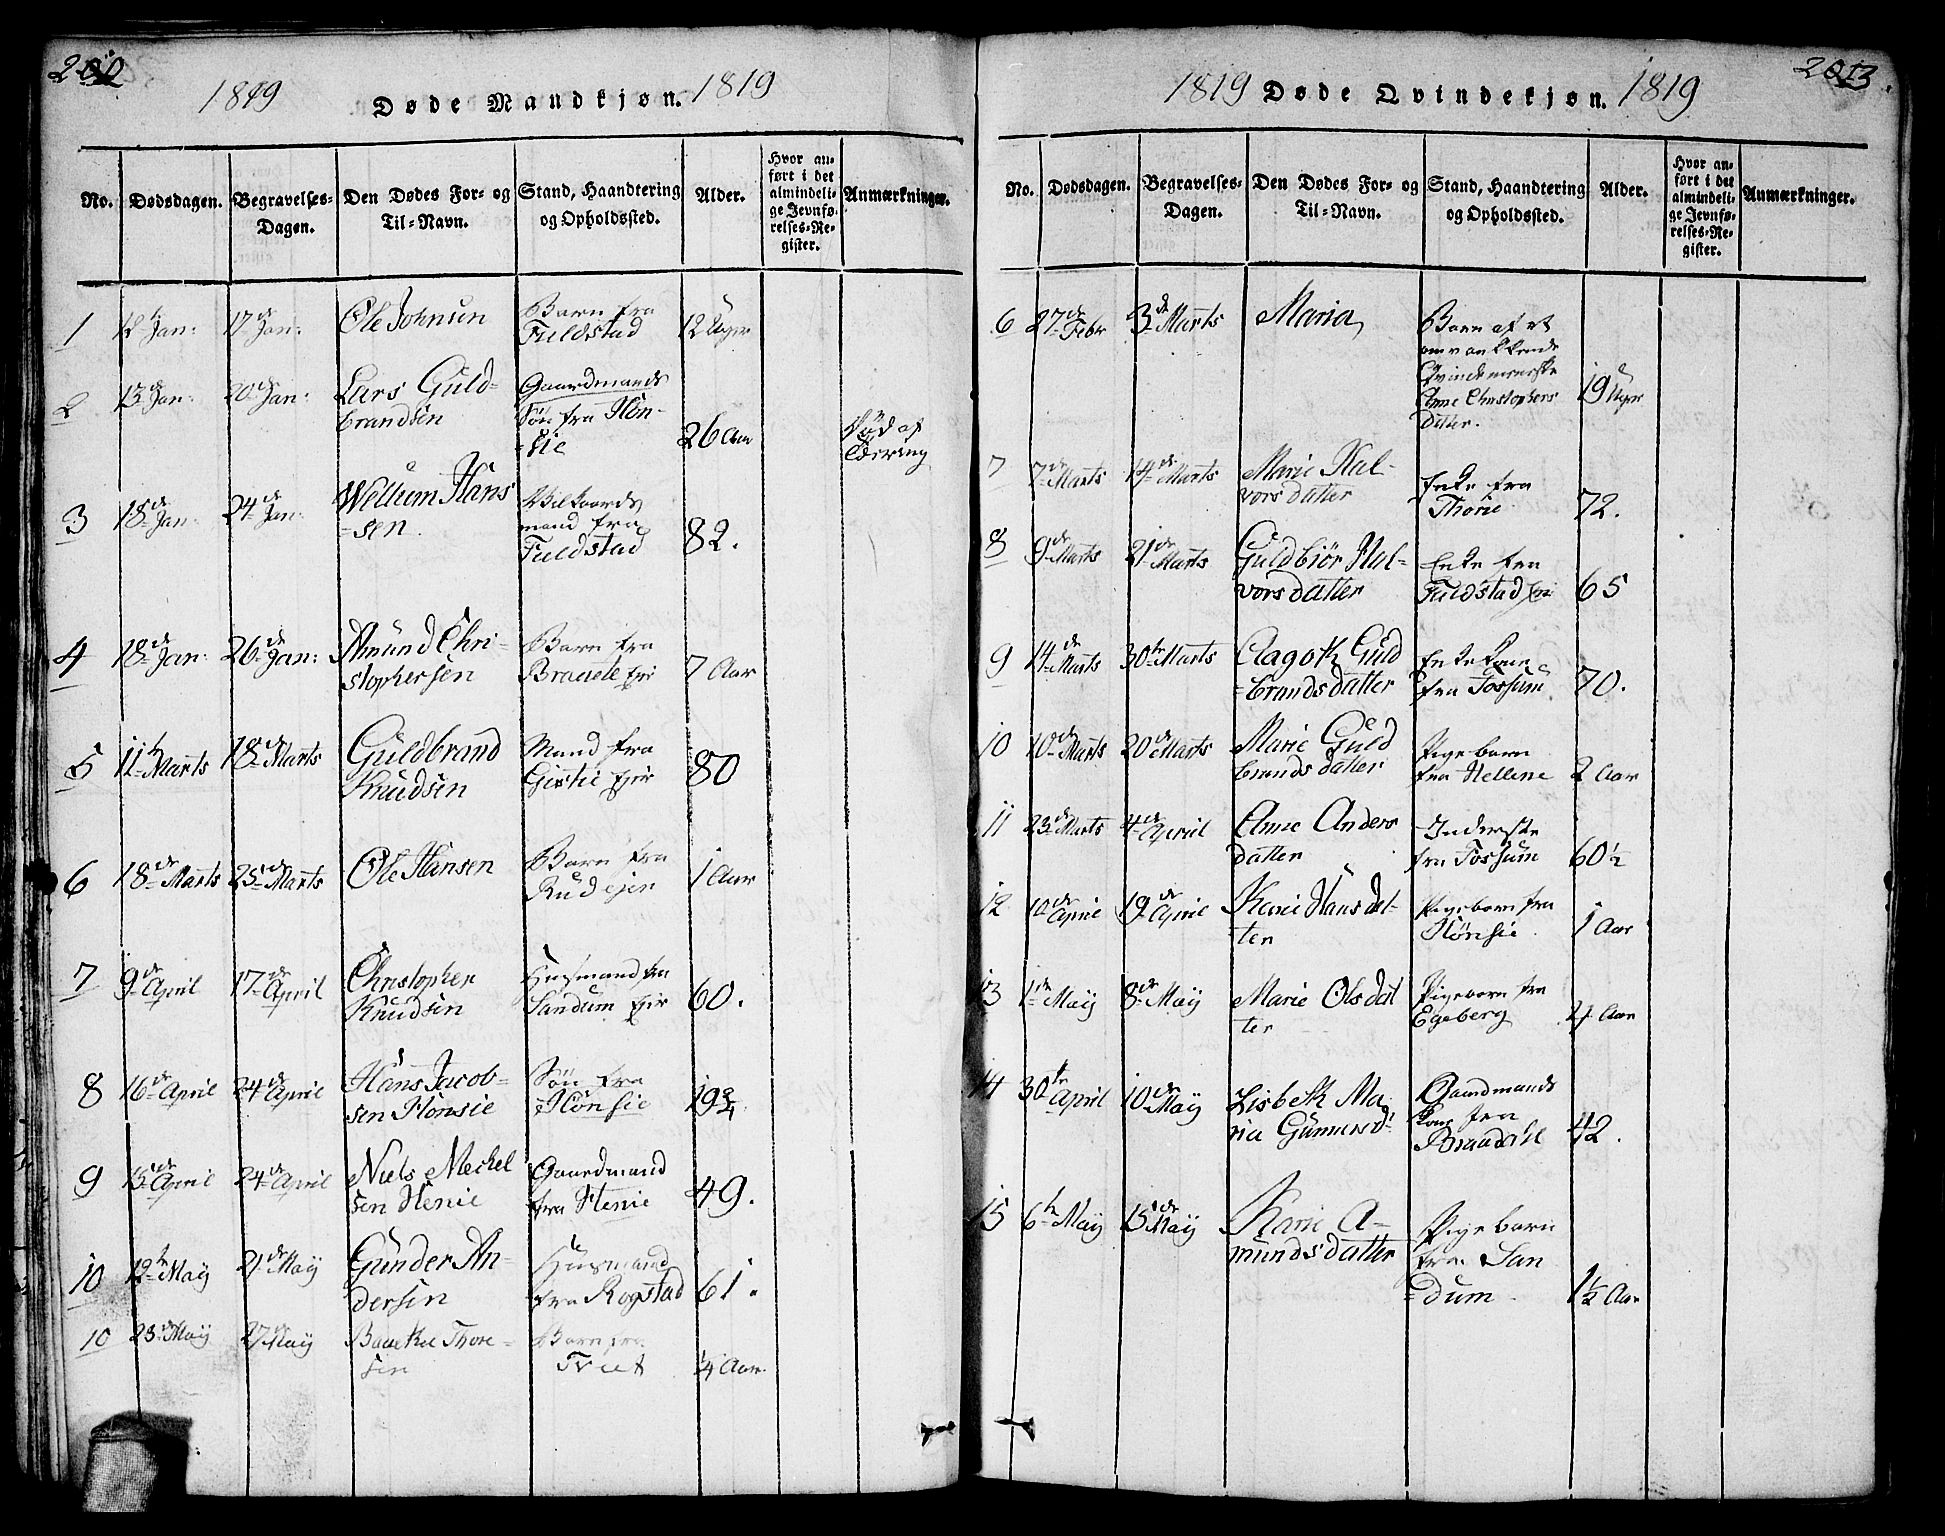 200
1819 Døde Mandkjøn. 1819
No.
Dødsdagen.
Begravelses-
Dagen.
Den Dødes For- og
Til-Navn.
Stand, Haandtering
og Opholdssted.
Alder.
Hvor an-
ført i det
almindeli-
ge Jevnfø-
relses-Re-
gister.
Anmærkninger.
1 12 Jan: 17de Jan: Ole Johnsen
Barn fra
Fuldstad
12 Uger
2 13de Jan: 20de Jan: Lars Guld-
brandsen
Gaardmands
Søn fra Høn-
sie
26 Aar
Død af
3 18de Jan: 24de Jan: Wellum Hans
-sen.
mand fra
Fuldstad
82.
4 18de Jan: 26de Jan: Amund Chri-
stophersen
Barn fra
7 Aar
5 11te Marts 18de Marts Guldbrand
Knudsen
Mand fra
80
6 18de Marts 25de Marts Ole Hansen
Barn fra
Rud
1 Aar
7 9de April 17de April Christopher
Knudsen
Husmand fra
Sandum
60.
8 16de April 24de April Hans Jacob-
sen Hønsie
Søn fra
Hønsie
19 3/4
9 15de April 24de April Niels Meckel
sen Henie
Gaardmand
fra Henie
49.
10 12te Maÿ 21de Maÿ Gunder An-
dersen
Husmand
fra Rogstad
61.
10 23de Maÿ 27de Maÿ Thore-
sen
Barn fra
1/4 Aar
1819 Døde Qvindekjøn. 1819
No.
Dødsdagen.
Begravelses-
Dagen.
Den Dødes For- og
Til-Navn.
Stand, Haandtering
og Opholdssted.
Alder.
Hvor an-
ført i det
almindeli-
ge Jevnfø-
relses-Re-
gister.
Anmærkninger.
6 27de Febr 3de Marts Maria
Barn af et
omvankkende
Qvindemenneske
Anne Christophers
Datter.
19 Uger
7 7de Marts 14de Marts Marie Hal-
vorsdatter
Enke fra
Thorie
72.
8 9de Marts 21de Marts Guldbiør Hal-
vorsdatter
Enke fra
Fuldstad
65
9 14de Marts 30te Marts Aagoth Guld
-brandsdatter
Enkekone
fra Fossum
70.
10 10de Marts 20de Marts Marie Guld
brandsdatter
Pigebarn
fra Hellene
2 Aar
11 23de Marts 4de April Anne Anders
datter
Inderste
fra Fossum
60 1/2
12 10de April 19de April Karie Hansdat-
ter
Pigebarn fra
Hønsie
1 Aar
13 1de Maÿ 8de Maÿ Marie Olsdat
ter
Pigebarn fra
Egeberg
Aar
14 30te April 10de Maÿ Lisbeth Ma
ria
Gaardmands
Kone fra
42.
15 6te Maÿ 15de Maÿ Karie A-
mundsdatter
Pigebarn
fra San
=dum
1 1/2 Aar